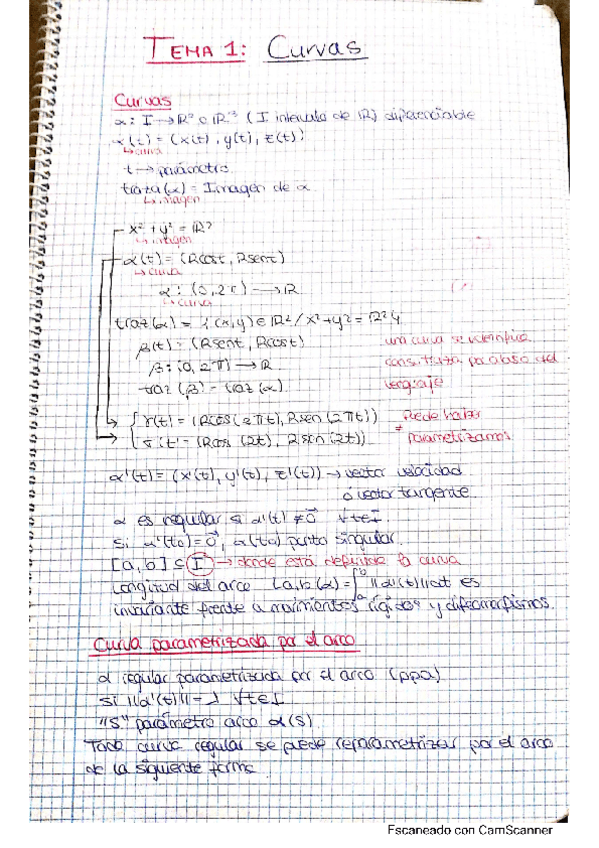 TEMA 1: Curvas
Curvas
α: I → R² o R³ (I intervalo de R) diferenciable
α(t) = (x(t), y(t), z(t))
↳ curva
t → parámetro
traza(α) = Imagen de α
↳ imagen
x² + y² = R²
↳ imagen
α(t) = (Rcost, Rsent)
↳ curva
α: (0, 2π) → R
↳ curva
traz(α) = {(x,y) ∈ R² / x²+y² = R²}
β(t) = (Rsent, Rcost)
una curva se identifica
β: (0, 2π) → R
con su traza por abuso del
traz(β) = traz(α)
lenguaje
γ(t) = (Rcos(2πt), Rsen(2πt))
Puede haber
σ(t) = (Rcos(2t), Rsen(2t))
≠ parametrizamos
α'(t) = (x'(t), y'(t), z'(t)) → vector velocidad
o vector tangente
α es regular si α'(t) ≠ 0⃗ ∀t∈I
si α'(t₀) = 0⃗, α(t₀) punto singular.
[a, b] ⊆ I → donde está definida la curva
Longitud del arco La,b(α) = ∫ₐᵇ ||α'(t)||dt es
invariante frente a movimientos rígidos y difeomorfismos.
Curva parametrizada por el arco
α regular parametrizada por el arco (ppa)
si ||α'(t)|| = 1 ∀t∈I
"s" parámetro arco α(s).
Toda curva regular se puede reparametrizar por el arco
de la siguiente forma
Escaneado con CamScanner